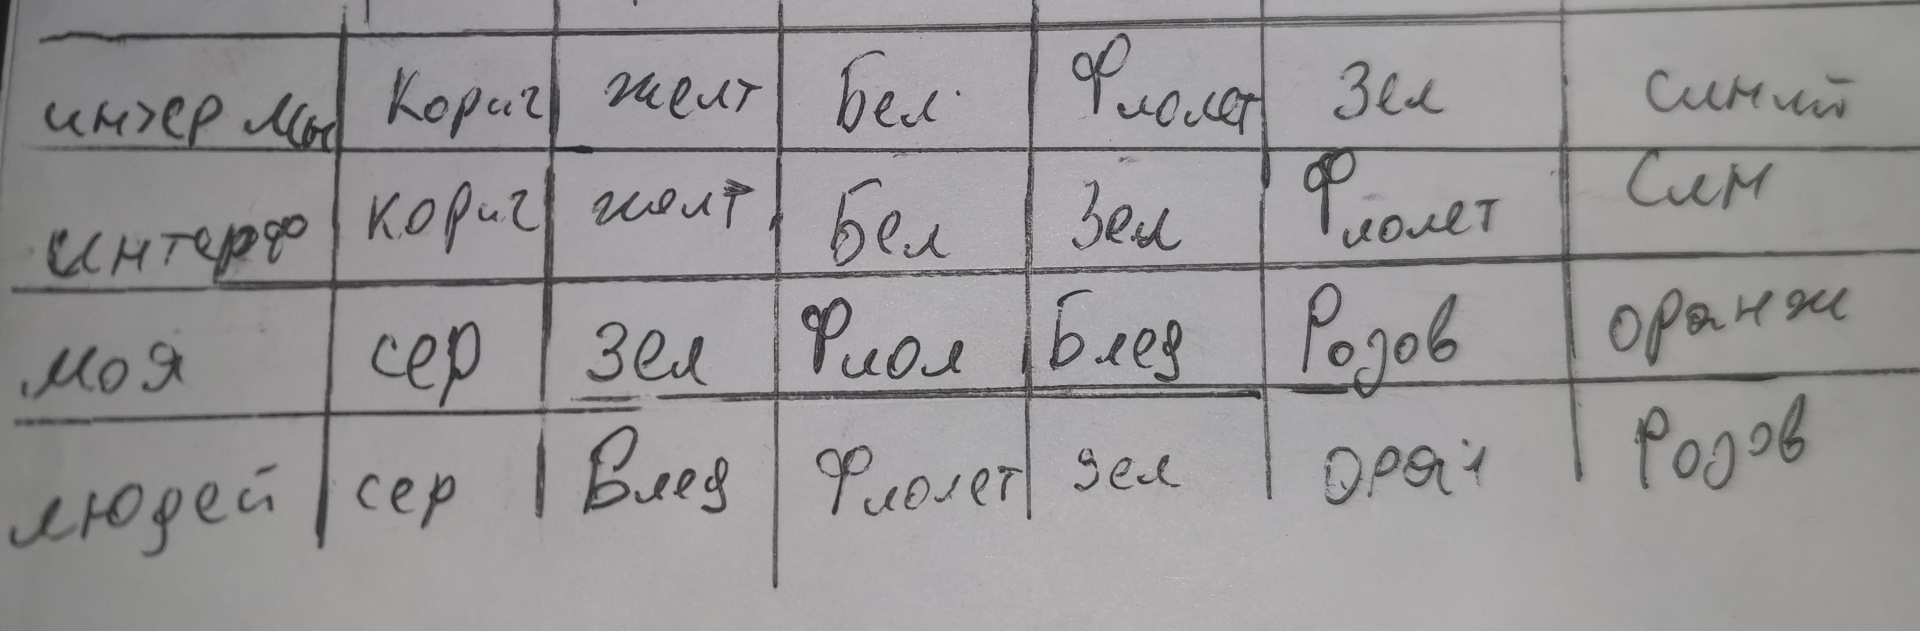 интер мы Кориг желт Бел. Фиолет Зел синий
интерф кориг желт Бел Зел Фиолет Син
моя сер Зел Фиол Блед Розов оранж
людей сер Блед Фиолет зел оран Розов